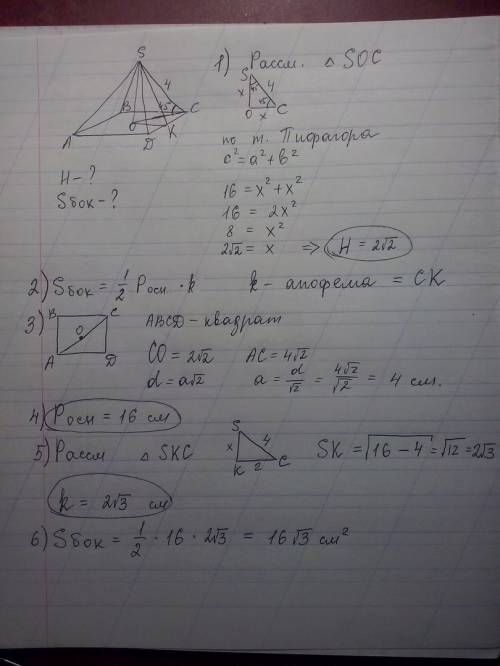 S
4
B
45°
C
O
A
D
K
H - ?
Sбок - ?
1) Рассм. △ SOC
S
45
x
4
45
O
x
C
по т. Пифагора
c² = a² + b²
16 = x² + x²
16 = 2x²
8 = x²
2√2 = x ⇒ H = 2√2
2) Sбок = 1/2 Pосн · k k - апофема = CK
3) B C
O
A D
ABCD - квадрат
CO = 2√2 AC = 4√2
d = a√2 a = d/√2 = 4√2/√2 = 4 см.
4) Pосн = 16 см
5) Рассм △ SKC
S
x
4
K
2
C
SK = √16 - 4 = √12 = 2√3
k = 2√3 см
6) Sбок = 1/2 · 16 · 2√3 = 16√3 см²